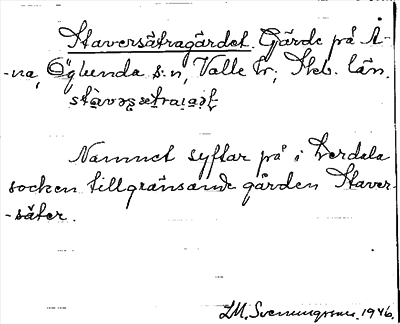 Staversätragärdet. Gärde på Å-
na, Öglunda s:n, Valle hr; Skb. län.
Namnet syftar på i Skerdala
socken tillgränsande gården Staver-
-säter.
LM. Svenungsson. 1946.